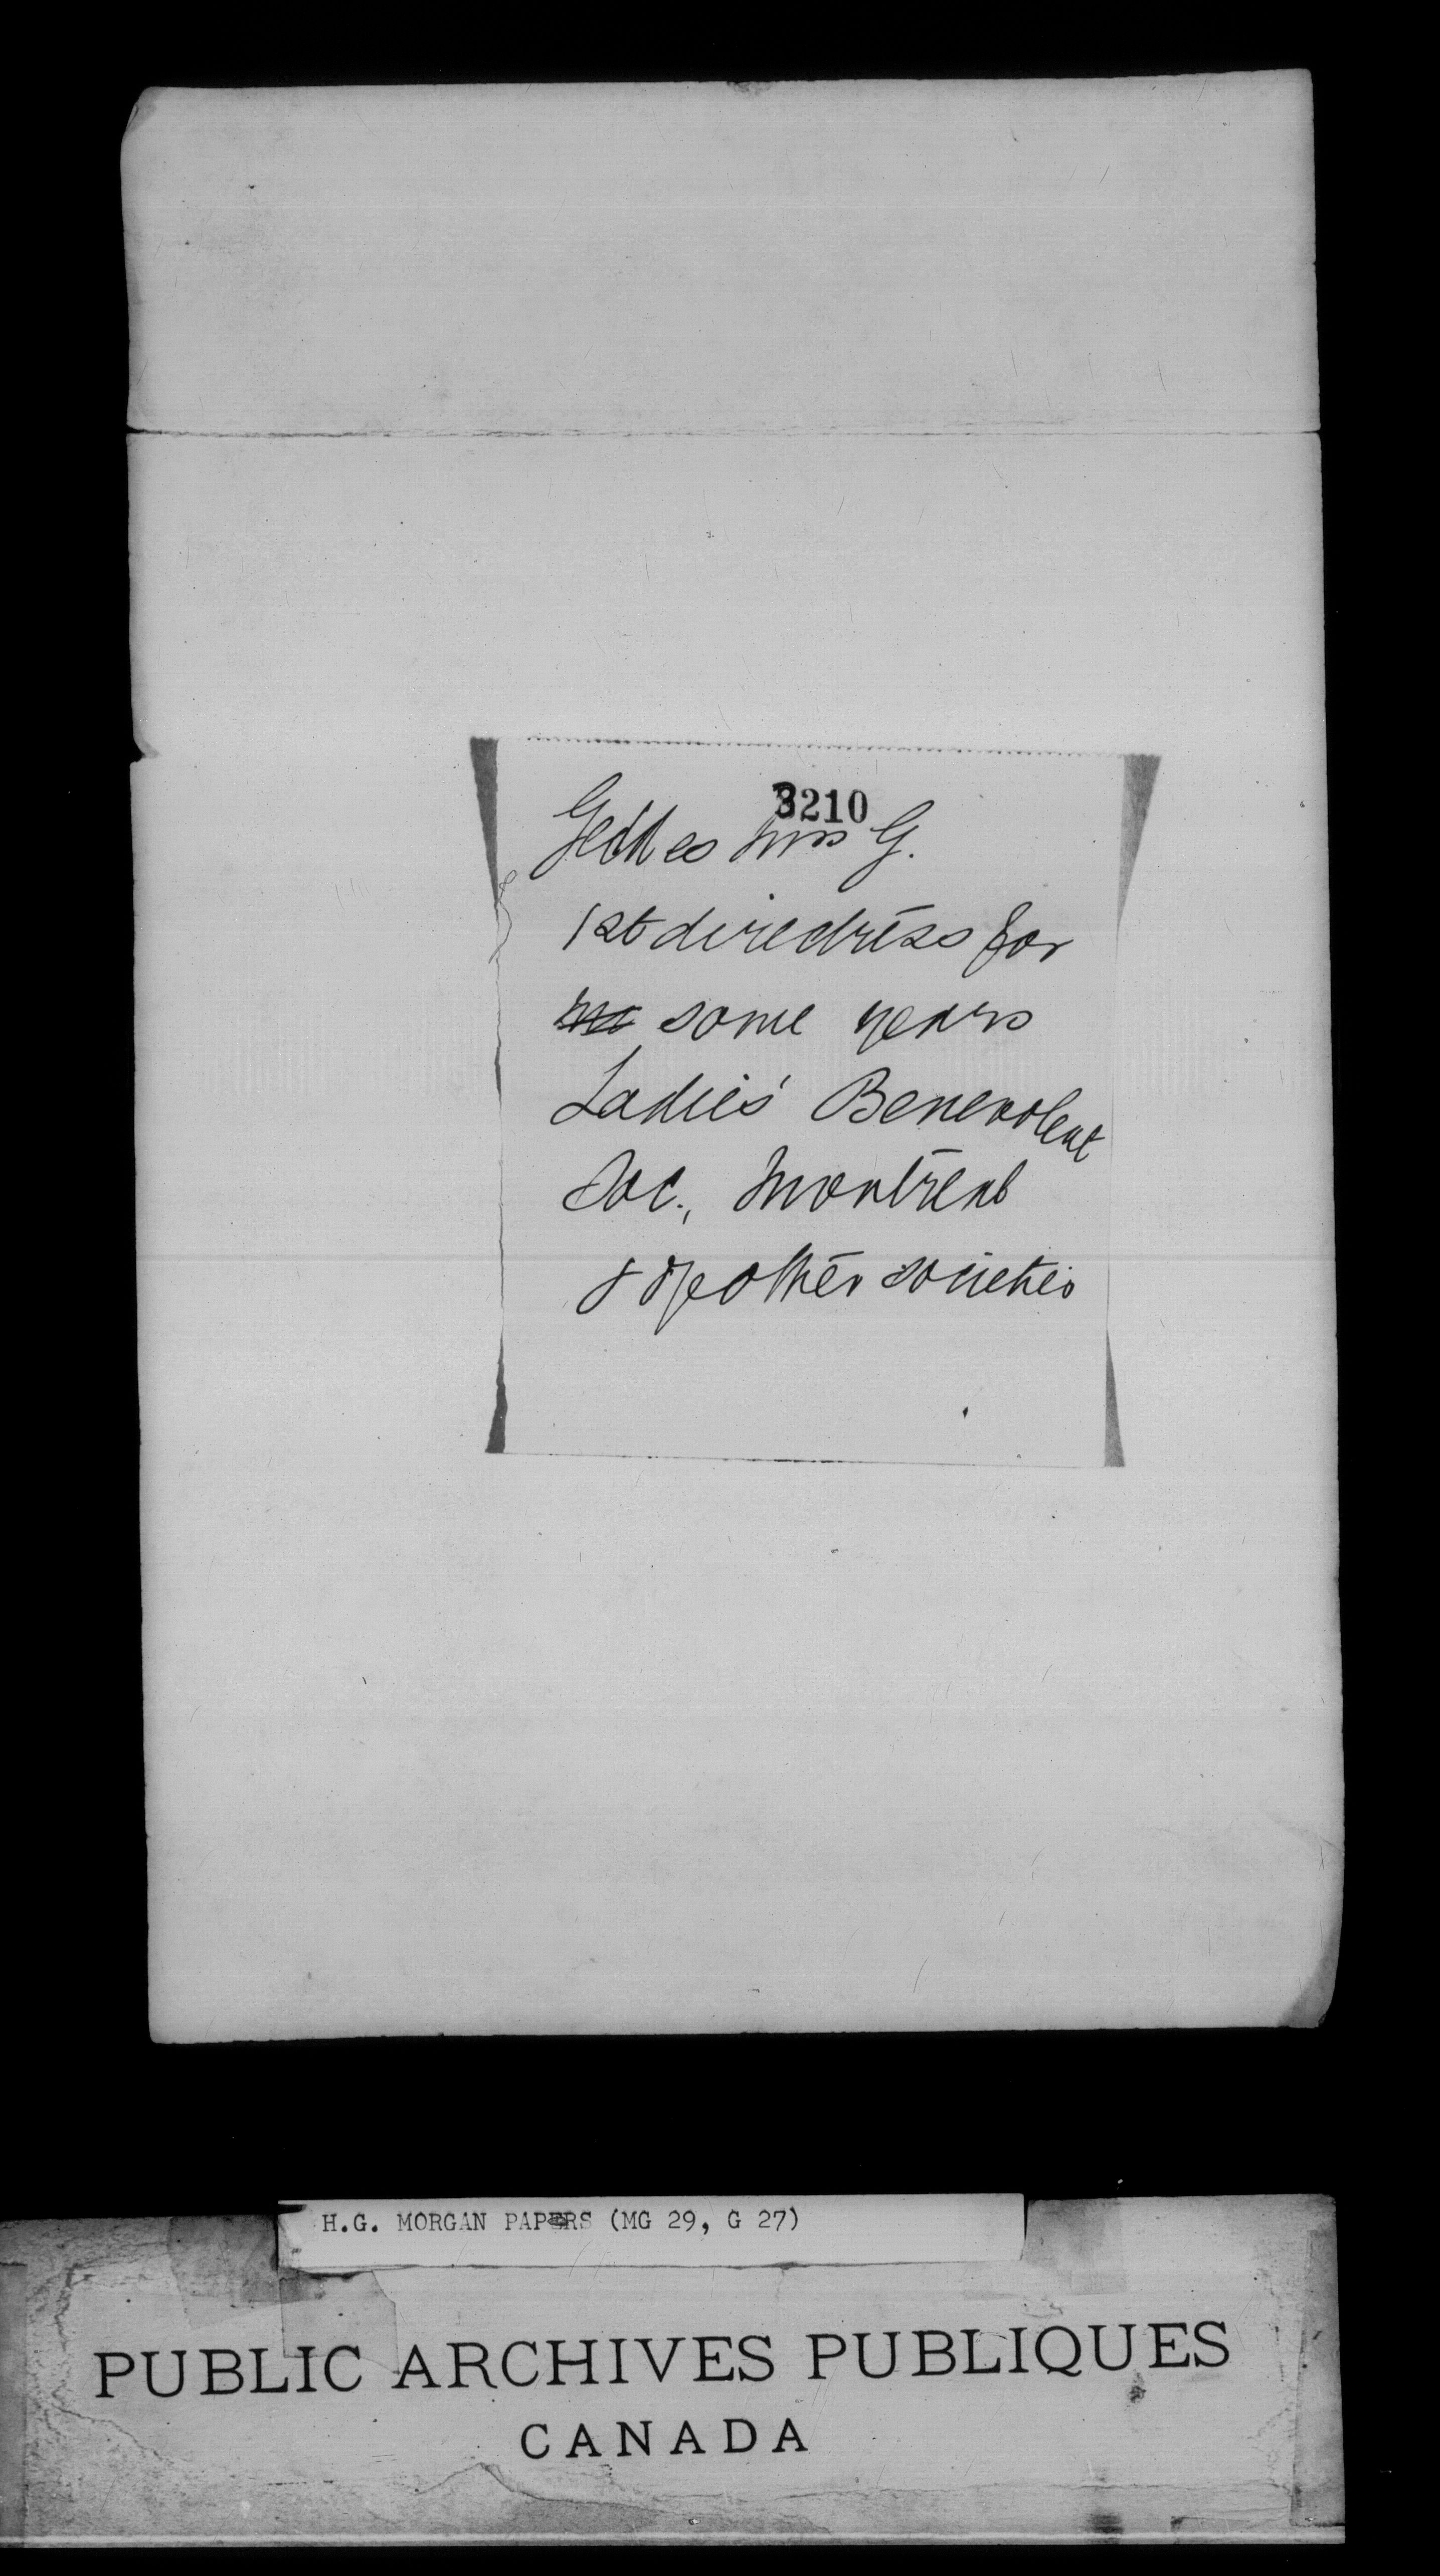 3210
Geddes Mrs G.
1st directress for
some years
Ladies' Benevolent
Soc., Montreal
& of other societies
H.G. MORGAN PAPERS (MG 29, G 27)
PUBLIC ARCHIVES PUBLIQUES
CANADA